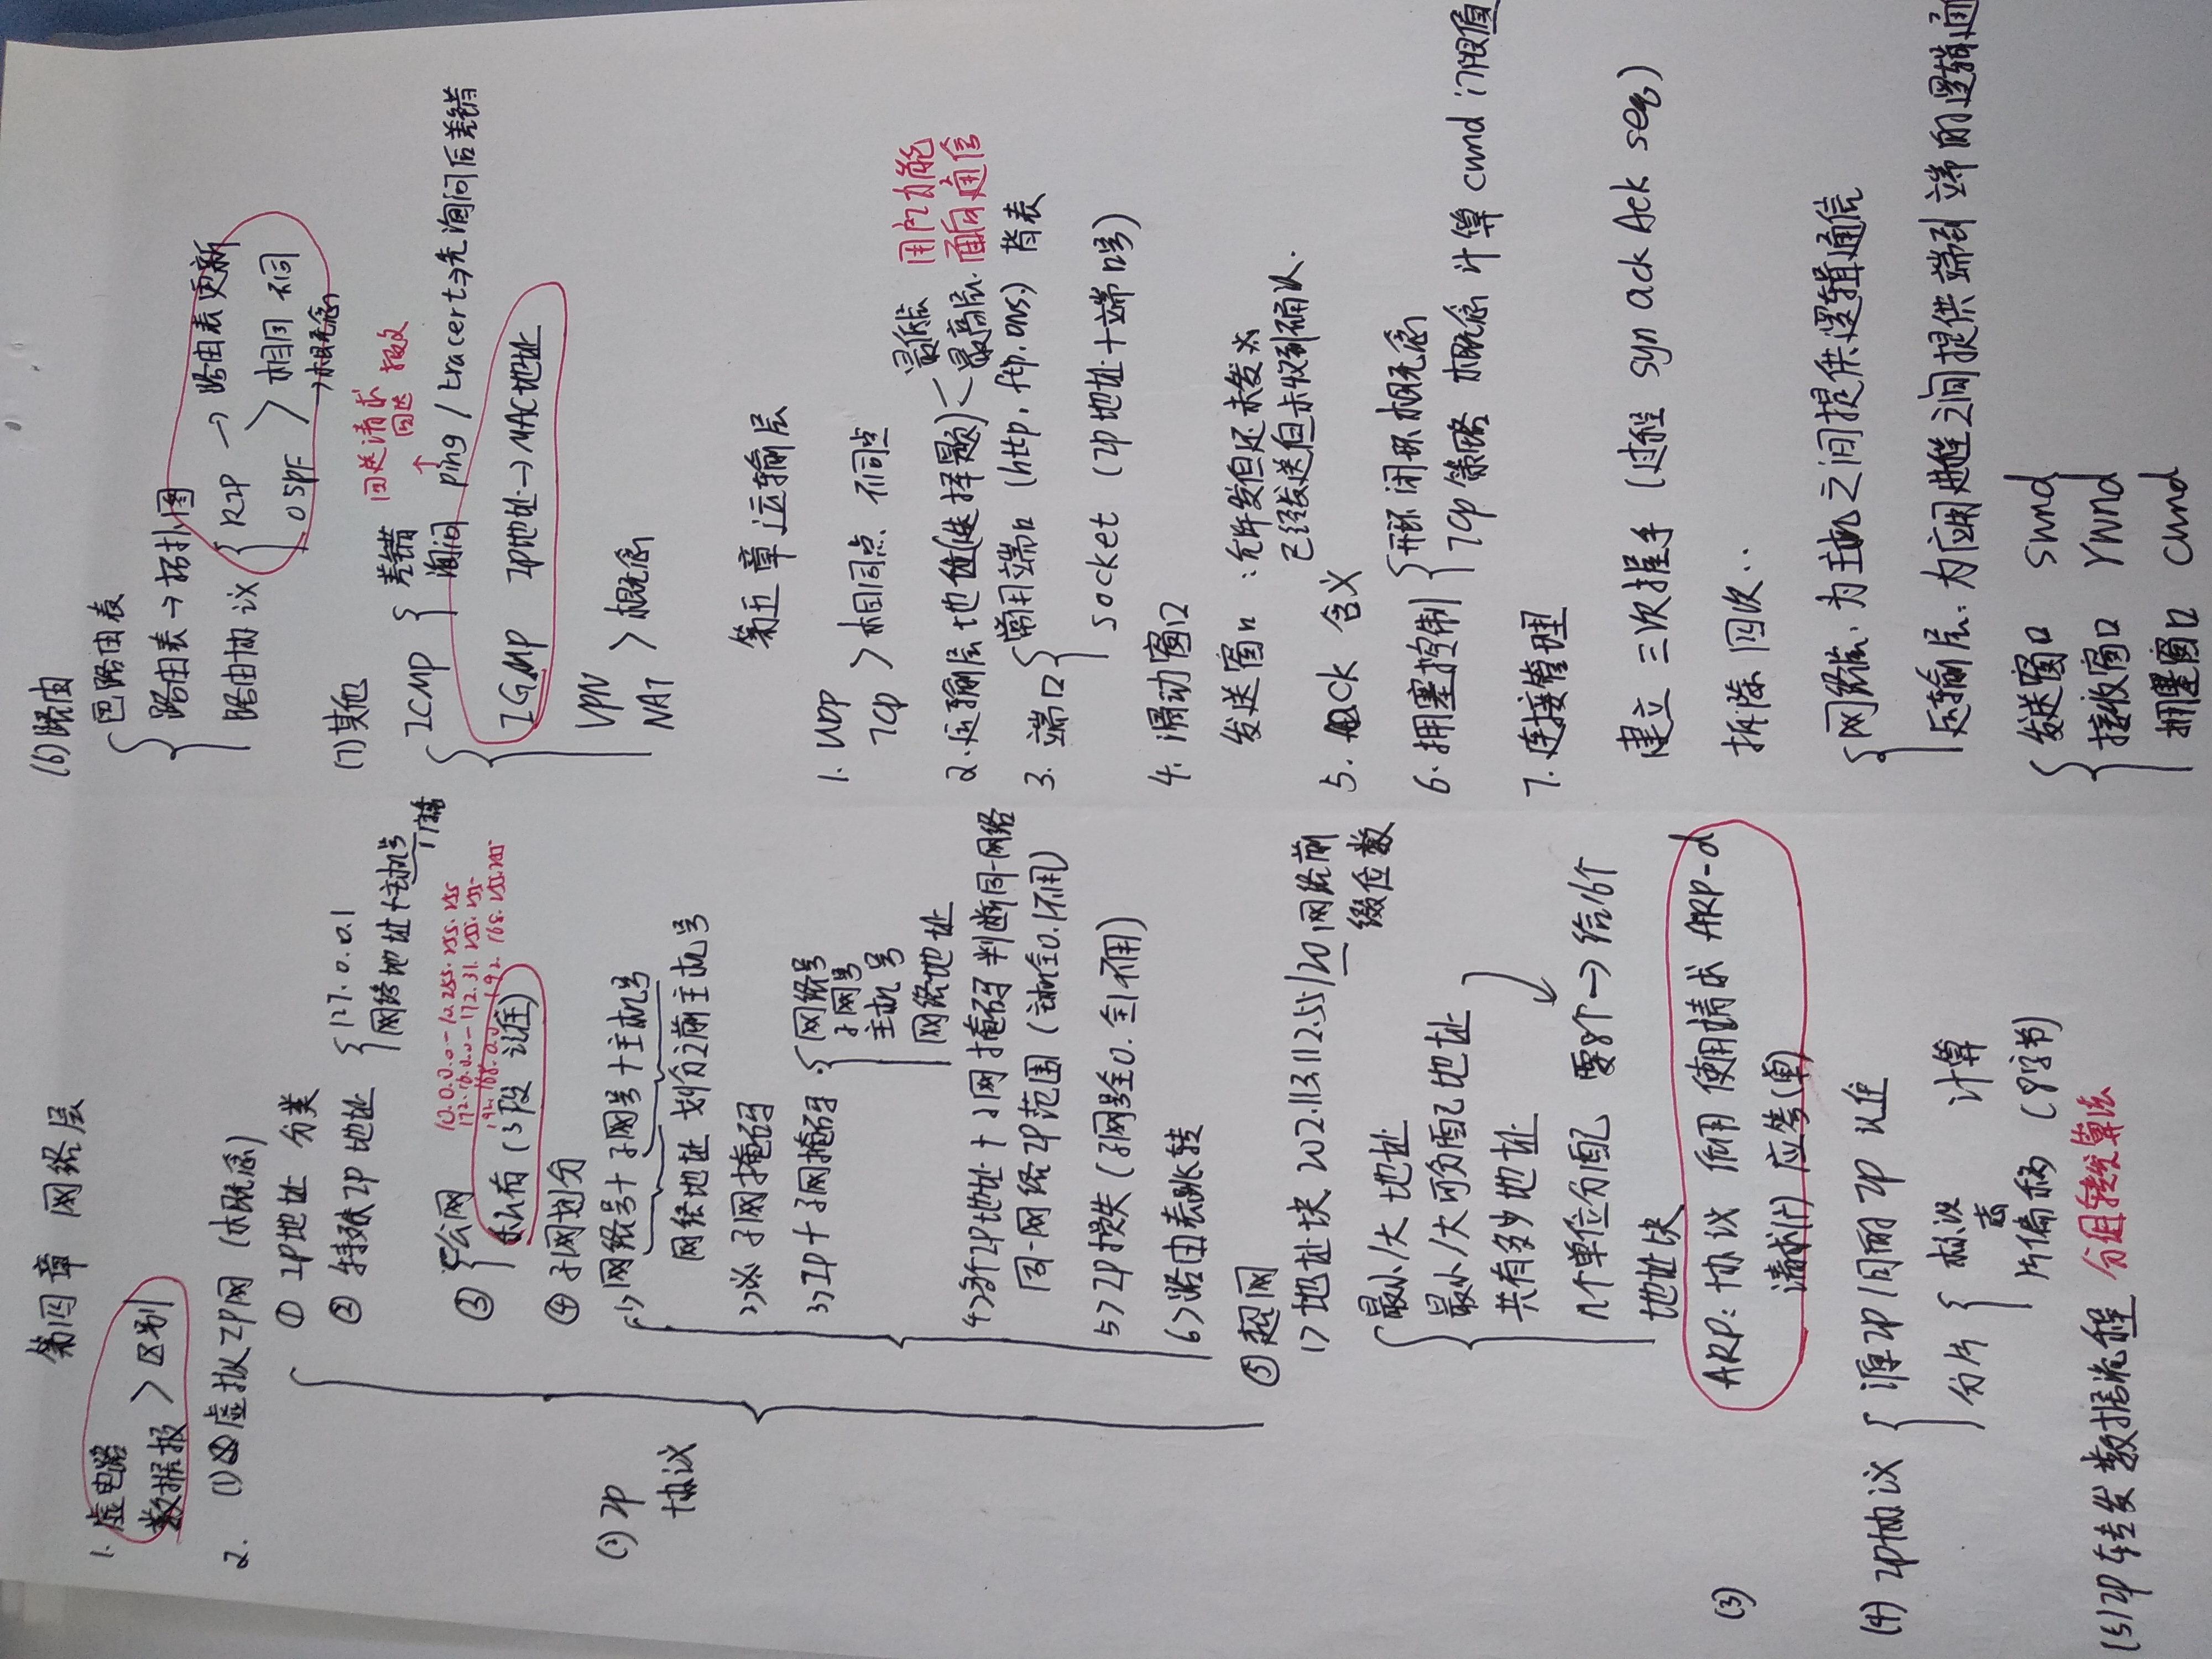 第四章 网络层
1. 虚电路
数据报 > 区别
2. (1) 虚拟IP网 (概念)
(2) IP协议
① IP地址 分类
② 特殊IP地址 { 127.0.0.1
网络地址+主机号
广播
10.0.0.0-10.255.255.255
172.16.0.0-172.31.255.255
192.168.0.0-192.168.255.255
③ { 公网
私有 (3段 记住)
④ 子网划分
1) 网络号+子网号+主机号
网络地址 划分之前主机号
2) 子网掩码
3) IP+子网掩码 { 网络号
子网号
主机号
网络地址
4) 多个IP地址+子网掩码判断同一网络
同一网络IP范围 (主机全0.1不用)
5) IP损失 (子网号全0.全1不用)
6) 路由表跳转
⑤ 超网
1) 地址块 202.113.112.55/20 网络前
缀位数
最小/大地址
最小/大可分配地址
共有多少地址
几个单位分配 要8个→给16个
地址块
(3) ARP: 协议 作用 使用请求 ARP-d
请求(广) 应答(单)
(4) IP协议 { 源IP 目的IP 处
分片 { 标识 计算
志
片偏移 (8字节)
(5) IP转发数据流程 分组转发算法
(6) 路由
路由表
路由表→拓扑图
路由协议 { RIP → 路由表更新
OSPF > 相同 不同
→概念
(7) 其他
回送请求
回答 报文
ICMP { 差错
询问 ping / tracert→先询问后差错
IGMP IP地址→MAC地址
VPN
NAT > 概念
第五章 运输层
1. UDP
TCP > 相同点 不同点
2. 运输层地位 (选择题) < 最低层 用户功能
最高层 面向通信
3. 端口 { 常用端口 (http, ftp, DNS) 背表
socket (IP地址+端口号)
4. 滑动窗口
发送窗口: 允许发但还未发
已经发送但未收到确认.
5. ACK 含义
6. 拥塞控制 { 开环 闭环 概念
TCP策略 概念 计算 cwnd 门限值
7. 连接管理
建立 三次握手 (过程 syn ack Ack seq)
拆除 四次..
{ 网络层: 为主机之间提供逻辑通信
运输层: 为应用进程之间提供端到端的逻辑通
发送窗口 swnd
接收窗口 rwnd
拥塞窗口 cwnd